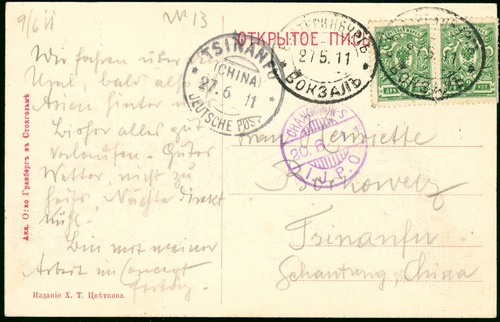 9/6 11
№ 13
ОТКРЫТОЕ ПИС
Wir fahren über
Ural bald alles
Asien hinter
Bisher alles gut
verlaufen. Gutes
Wetter nicht zu
heiß. Nächte direkt
kühl.
Bin mit meiner
Arbeit im Concept
fertig.
TSINANFU
(CHINA)
27 6 11
DEUTSCHE POST
27.5.11
ВОКЗАЛЪ
20.6
I.J.P.O.
Frau Henriette
Tsinanfu
Schantung, China
Акц. О-во Гранбергъ въ Стокгольмѣ
Изданіе Х. Т. Цвѣткова.